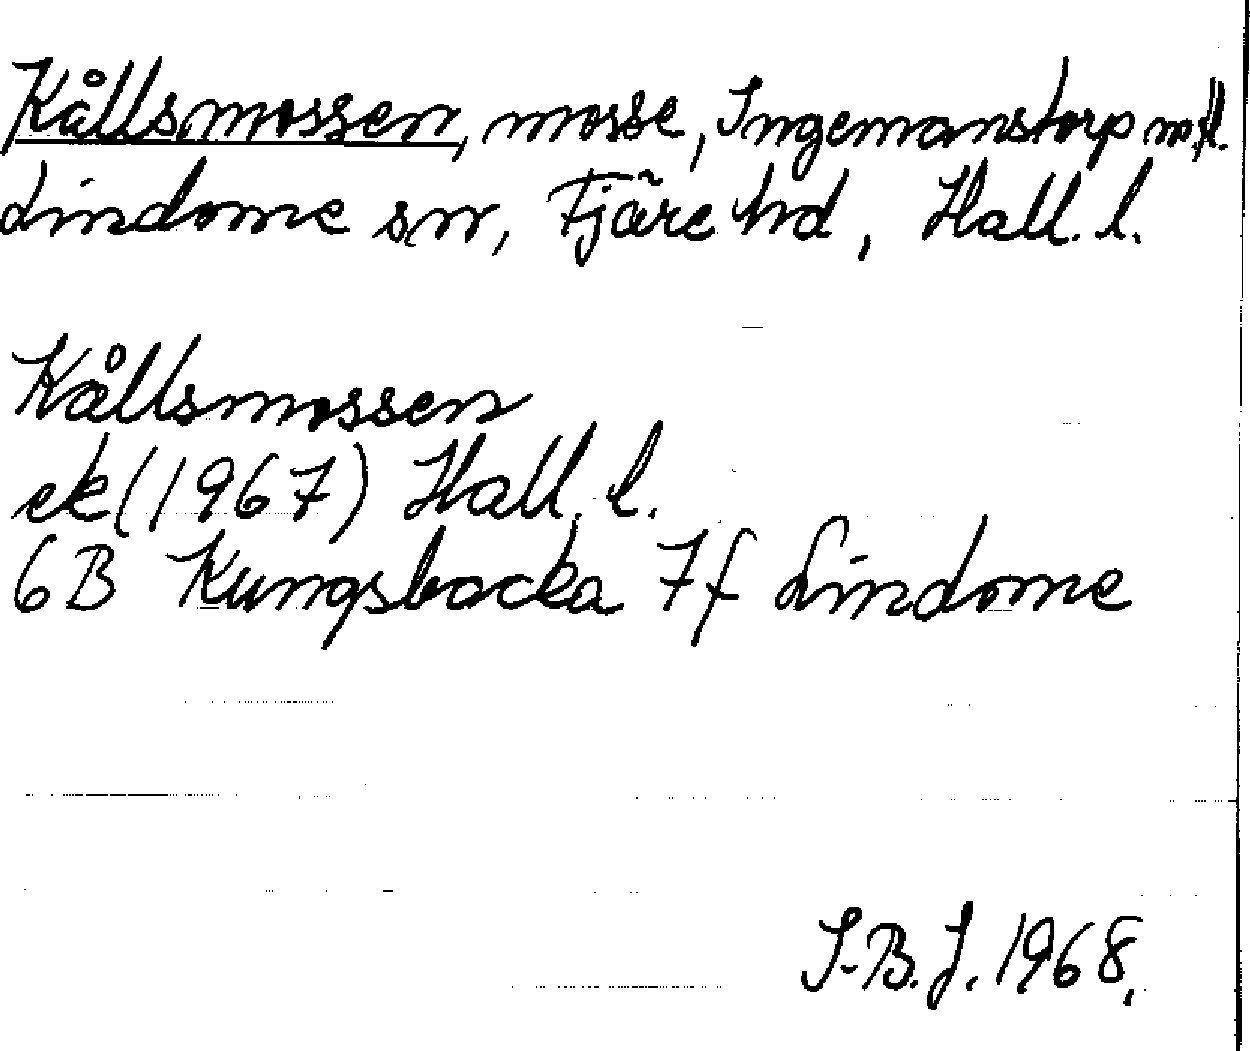 Kållsmossen, mosse, Ingemanstorp m.fl.
Lindome sn, Fjäre hd, Hall. l.
Kållsmossen
ek (1967) Hall. l.
6B Kungsbacka 7f Lindome
I-B. J. 1968.